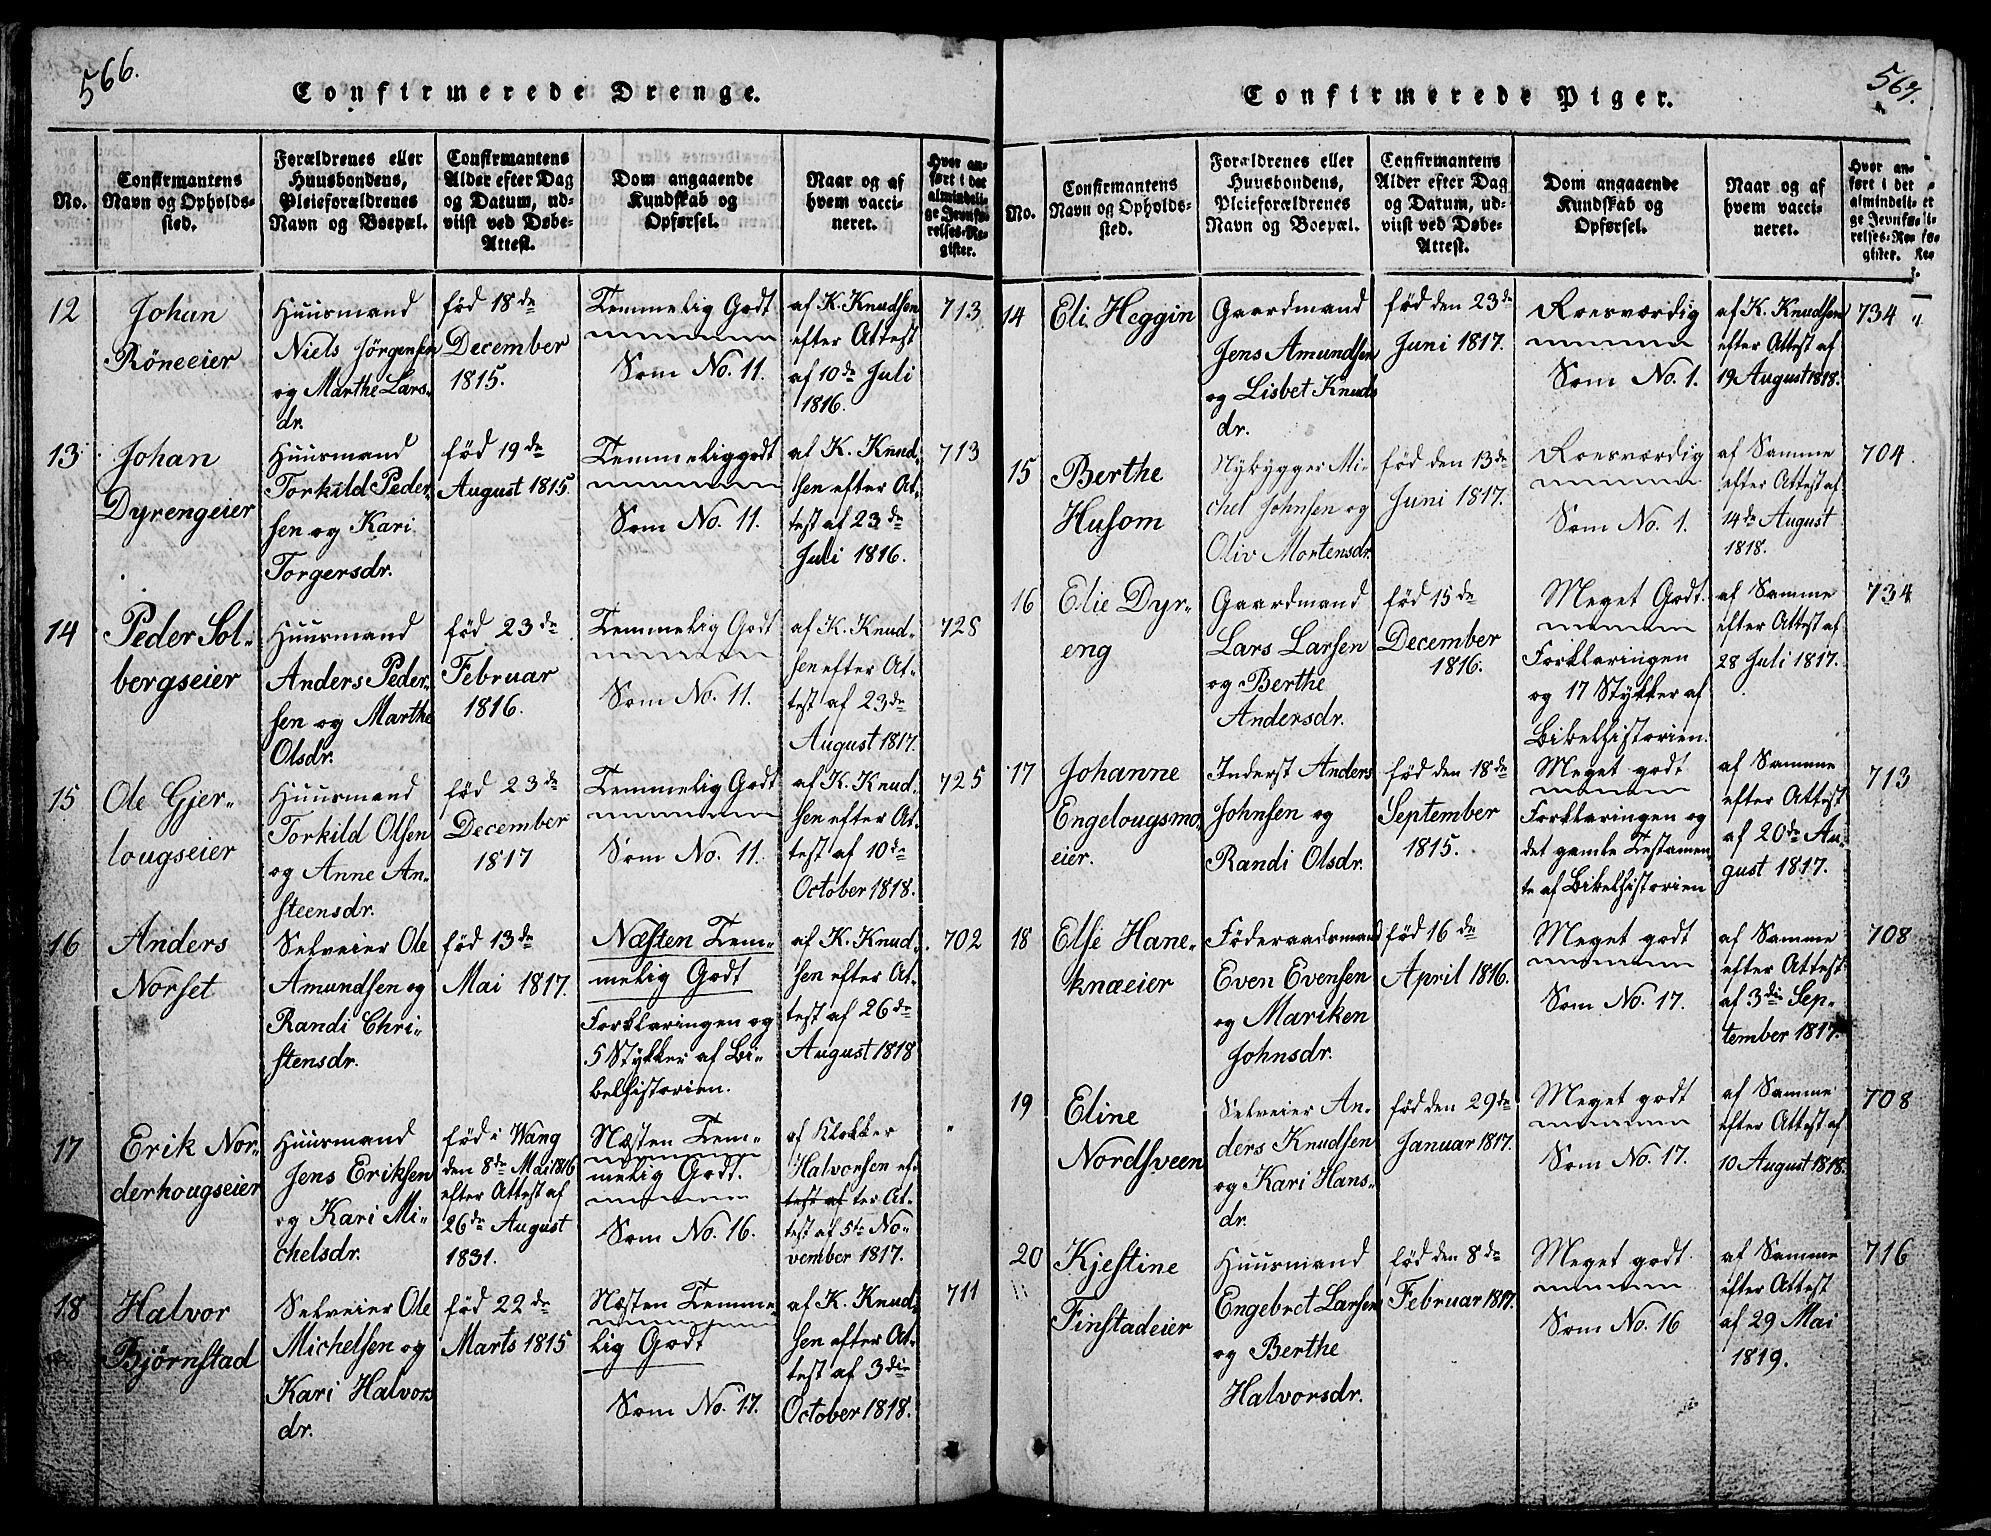 566.
Confirmerede Drenge.
No.
Confirmantens
Navn og Opholds-
sted.
Forældrenes eller
Huusbondens,
Pleieforældrenes
Navn og Boepæl.
Confirmantens
Alder efter Dag
og Datum, ud-
viist ved Døbe-
Attest.
Dom angaaende
Kundskab og
Opførsel.
Naar og af
hvem vacci-
neret.
Hvor an-
ført i det
almindeli-
ge Jevnfø-
relses-Re-
gister.
12
Johan
Röneeier
Huusmand
Niels Jörgensen
og Marthe Lars-
dr.
fød 18de
December
1815.
Temmelig Godt
Som No. 11.
af K. Knudsen
efter Attest
af 10de Juli
1816.
713
13
Johan
Dyrengeier
Huusmand
Torkild Peder-
sen og Kari
Torgersdr.
fød 19de
August 1815
Temmelig godt
Som No. 11.
af K. Knud-
sen efter At-
test af 23de
Juli 1816.
713
14
Peder Sol-
bergseier
Huusmand
Anders Peder-
sen og Marthe
Olsdr.
fød 23de
Februar
1816.
Temmelig Godt
Som No. 11.
af K. Knud-
sen efter At-
test af 23de
August 1817.
728
15
Ole Gjer-
lougseier
Huusmand
Torkild Olsen
og Anne An-
steensdr.
fød 23de
December
1817
Temmelig Godt
Som No. 11.
af K. Knud-
sen efter At-
test af 10de
October 1818.
725
16
Anders
Norset
Selveier Ole
Amundsen og
Randi Chri-
stensdr.
fød 13de
Mai 1817.
Næsten Tem-
melig Godt
Forklaringen og
5 Stykker af Bi-
belhistorien.
af K. Knud-
sen efter At-
test af 26de
August 1818
702
17
Erik Nor-
derhougseier
Huusmand
Jens Eriksen
og Kari Mi-
chelsdr.
fød i Wang
den 8de Mai 1816
efter Attest af
26de August
1831.
Næsten Tem-
melig Godt.
Som No. 16.
af Klokker
Halvorsen ef-
test af ter At-
test af 5te No-
vember 1817.
"
18
Halvor
Bjørnstad
Selveier Ole
Michelsen og
Kari Halvors
dr.
fød 22de
Marts 1815
Næsten Temme-
lig Godt
Som No. 17.
af K. Knud-
sen efter At-
test af 3die
October 1818.
711
567.
Confirmerede Piger.
No.
Confirmantens
Navn og Opholds-
sted.
Forældrenes eller
Huusbondens,
Pleieforældrenes
Navn og Boepæl.
Confirmantens
Alder efter Dag
og Datum, ud-
viist ved Døbe-
Attest.
Dom angaaende
Kundskab og
Opførsel.
Naar og af
hvem vacci-
neret.
Hvor an-
ført i det
almindeli-
ge Jevnfø-
relses-Re-
gister.
14
Eli Heggin
Gaardmand
Jens Amundsen
og Lisbet Knuds
dr.
fød den 23de
Juni 1817.
Roesværdig
Som No. 1.
af K. Knudsen
efter Attest af
19 August 1818.
734
15
Berthe
Husom
Nybygger Mi-
chel Johnsen og
Oliv Mortensdr.
fød den 13de
Juni 1817.
Roesværdig
Som No. 1.
af Samme
efter Attest af
14de August
1818.
704.
16
Elie Dyr-
eng
Gaardmand
Lars Larsen
og Berthe
Andersdr.
fød 15de
December
1816.
Meget Godt.
Forklaringen
og 17 Stykker af
Bibelhistorien.
af Samme
efter Attest af
28 Juli 1817.
734
17
Johanne
Engelougsmo-
eier.
Inderst Anders
Johnsen og
Randi Olsdr.
fød den 18de
September
1815.
Meget godt
Forklaringen og
det gamle Testamen-
te af Bibelhistorien
af Samme
efter Attest
af 20de Au-
gust 1817.
713
18
Else Hane-
knæeier
Föderaadsmand
Even Evensen
og Mariken
Johnsdr.
fød 16de
April 1816.
Meget godt
Som No. 17.
af Samme
efter Attest
af 3die Sep-
tember 1817.
708
19
Eline
Nordsveen
Selveier An-
ders Knudsen
og Kari Hans-
dr.
fød den 29de
Januar 1817.
Meget godt
Som No. 17.
af Samme
efter Attest af
10 August 1818.
708
20
Kjestine
Finstadeier
Huusmand
Engebret Larsen
og Berthe
Halvorsdr.
fød den 8de
Februar 1817.
Meget godt.
Som No. 16
af Samme
efter Attest
af 29 Mai
1819.
716